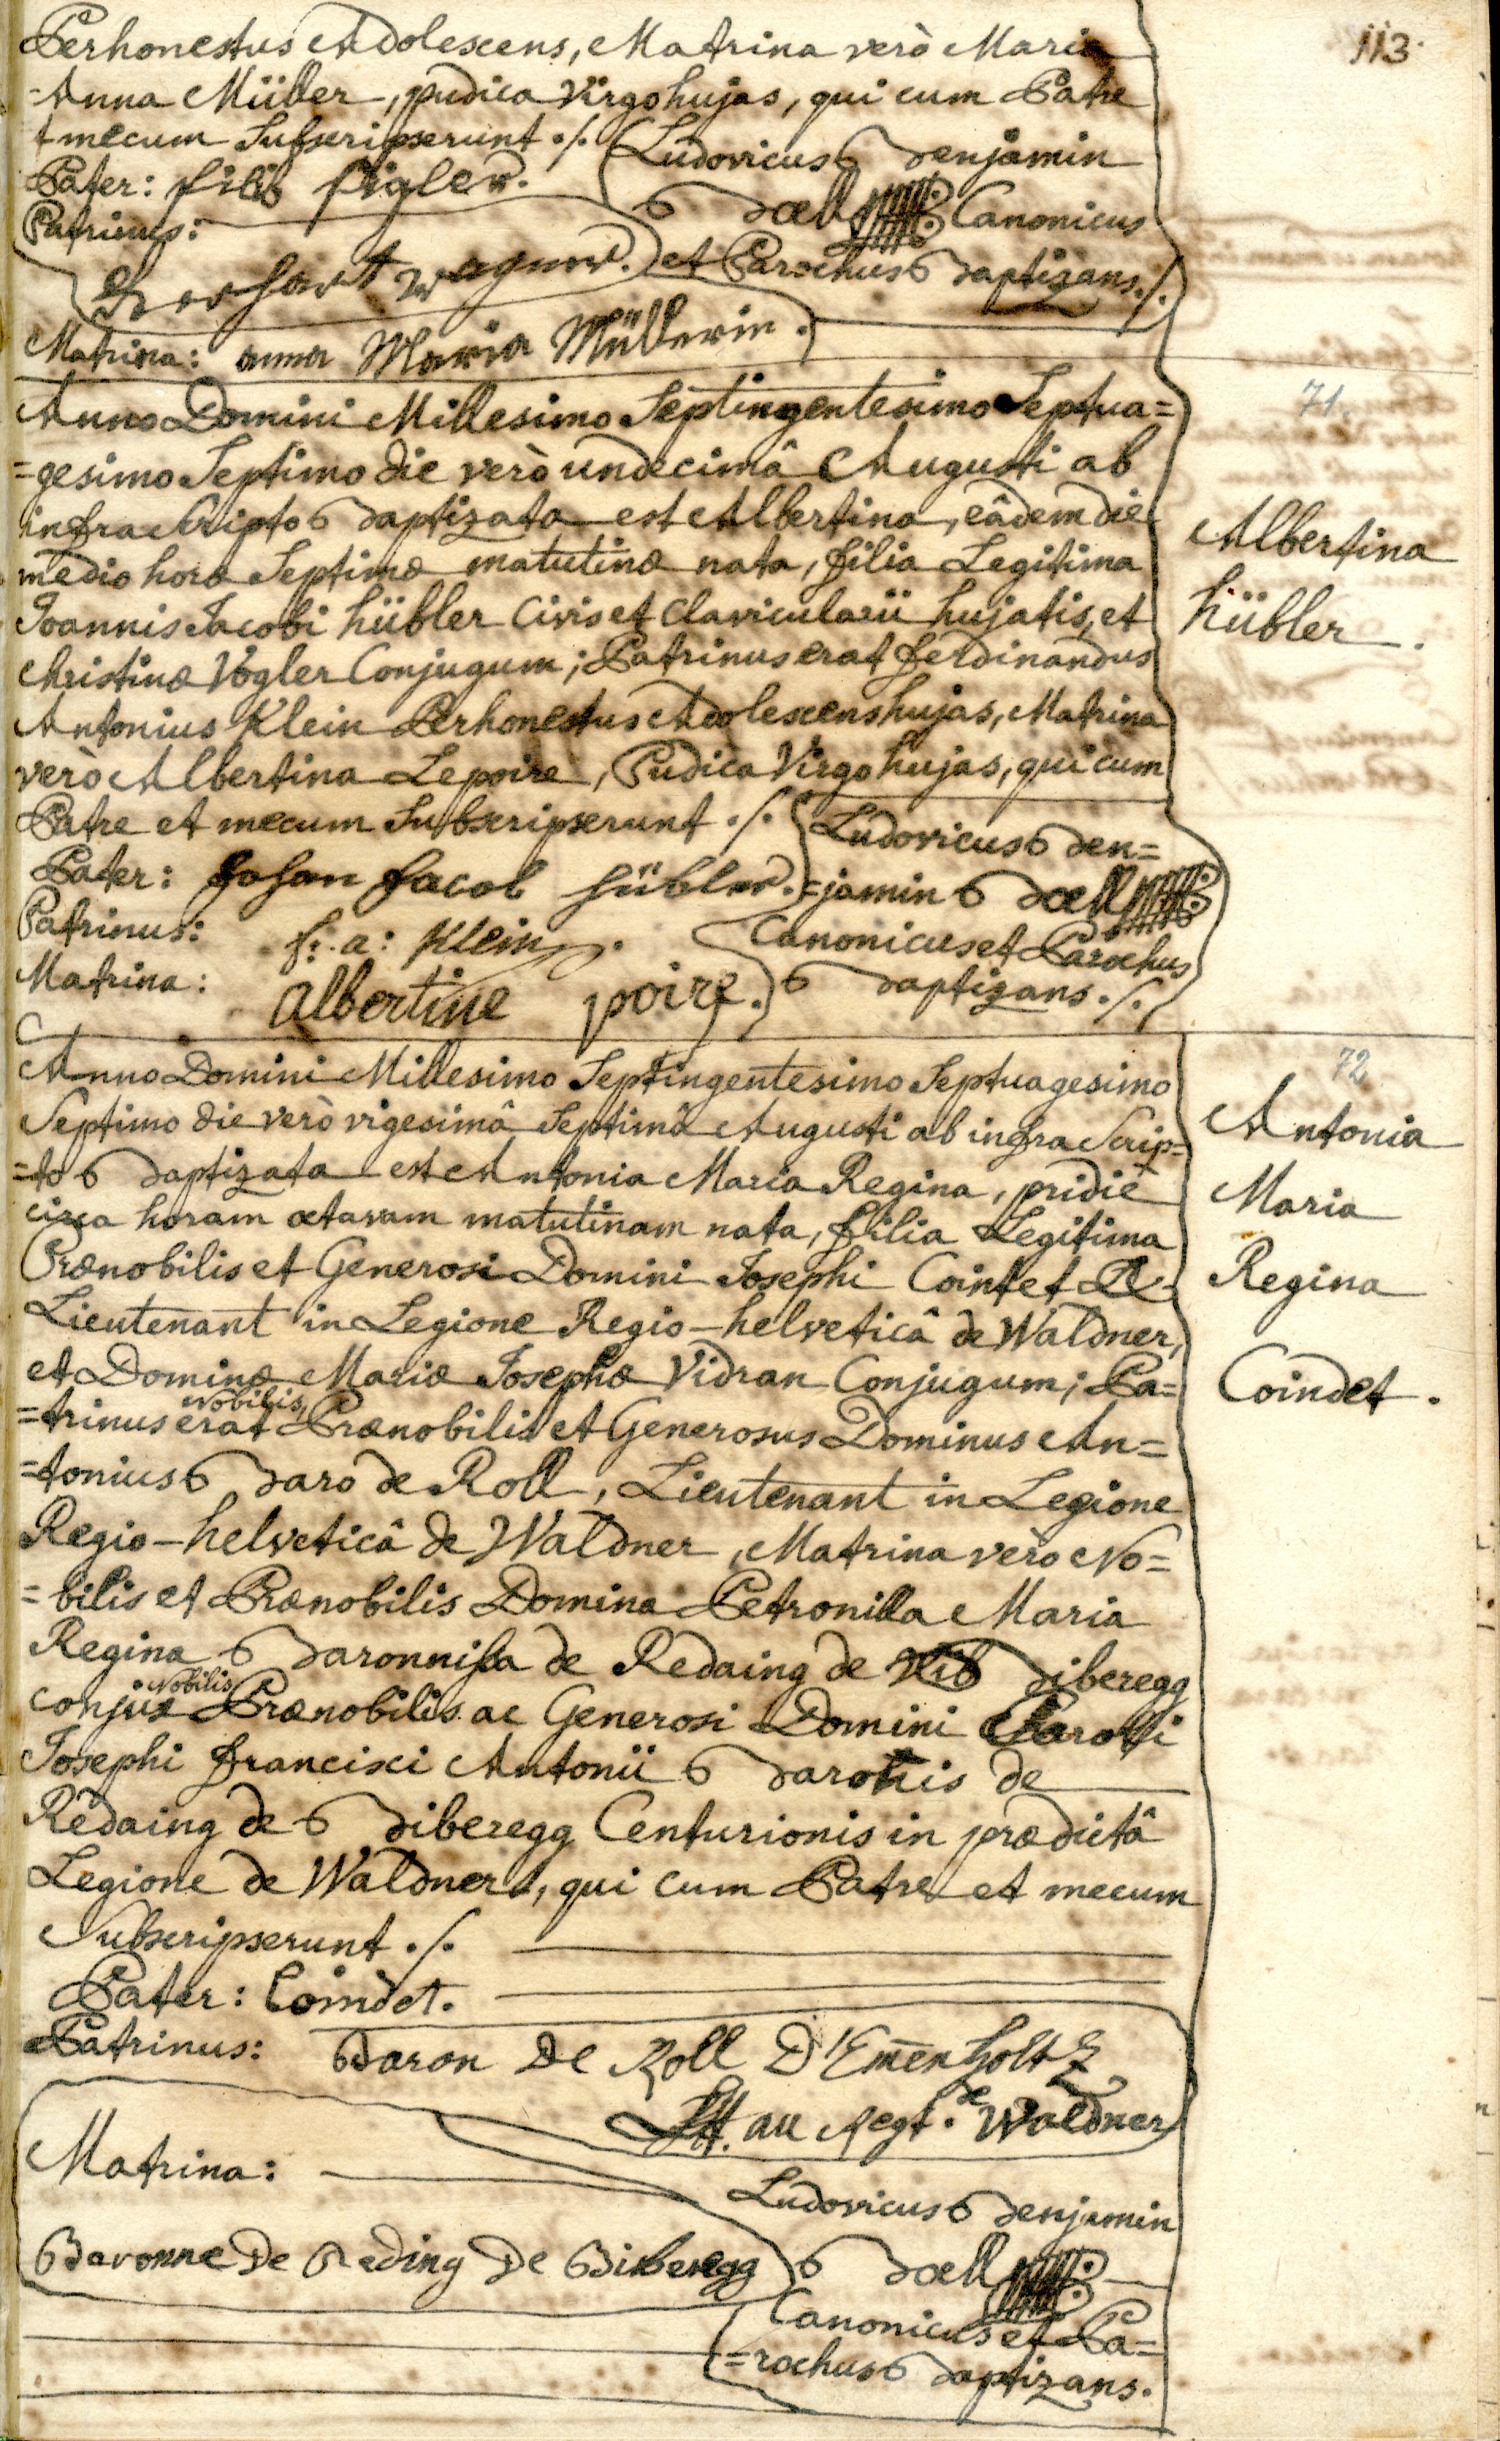 113.
Perhonestus Adolescens, Matrina verò Maria
Anna Müller, pudica Virgo hujas, qui cum Patre
et mecum Subscripserunt ./.
Ludovicus Benjamin
Pater: filib figler.
Bœll Canonicus
Patrinus:
Wagner.
et Parochus Baptizans ./.
Matrina: anna Maria Müllerin.
71.
Anno Domini Millesimo Septingentesimo Septua=
=gesimo Septimo die verò undecimâ Augusti ab
infra Scripto Baptizata est Albertina, eâdem die
medio horæ Septimæ matutinæ nata, filia Legitima
Joannis Jacobi hübler Civis et Clavicularii hujatis, et
Christinæ Vogler Conjugum; Patrinus erat ferdinandus
Antonius Klein Perhonestus Adolescens hujas, Matrina
verò Albertina Lepoire, Pudica Virgo hujas, qui cum
Patre et mecum Subscripserunt ./.
Albertina
hübler.
Ludovicus Ben=
Pater: Johan Jacob hübler.
=jamin Bœll
Patrinus: f: a: Klein.
Canonicus et Parochus
Matrina: Albertine poire.
Baptizans ./.
72
Anno Domini Millesimo Septingentesimo Septuagesimo
Septimo die verò vigesimâ Septimâ Augusti ab infra Scrip=
=to Baptizata est Antonia Maria Regina, pridie
circa horam octavam matutinam nata, filia Legitima
Prænobilis et Generosi Domini Josephi Cointet
Lieutenant in Legione Regio-helveticâ de Waldner,
et Dominæ Mariæ Josephæ Vidran Conjugum; Pa=
Nobilis,
=trinus erat Prænobilis et Generosus Dominus An=
=tonius Baro de Roll, Lieutenant in Legione
Regio-helveticâ de Waldner, Matrina verò No=
=bilis et Prænobilis Domina Petronilla Maria
Regina Baronnissa de Redaing de Biberegg
Nobilis
conjux Prænobilis ac Generosi Domini Caroli
Josephi francisci Antonii Baronis de
Redaing de Biberegg Centurionis in prædictâ
Legione de Waldner, qui cum Patre et mecum
Subscripserunt ./.
Antonia
Maria
Regina
Coindet.
Pater: Coindet.
Patrinus: Baron De Roll D'Emenholtz
Lt. au Regt. de Waldner
Matrina:
Baronne De Reding De Biberegg
Ludovicus Benjamin
Bœll
Canonicus et Pa=
=rochus Baptizans.